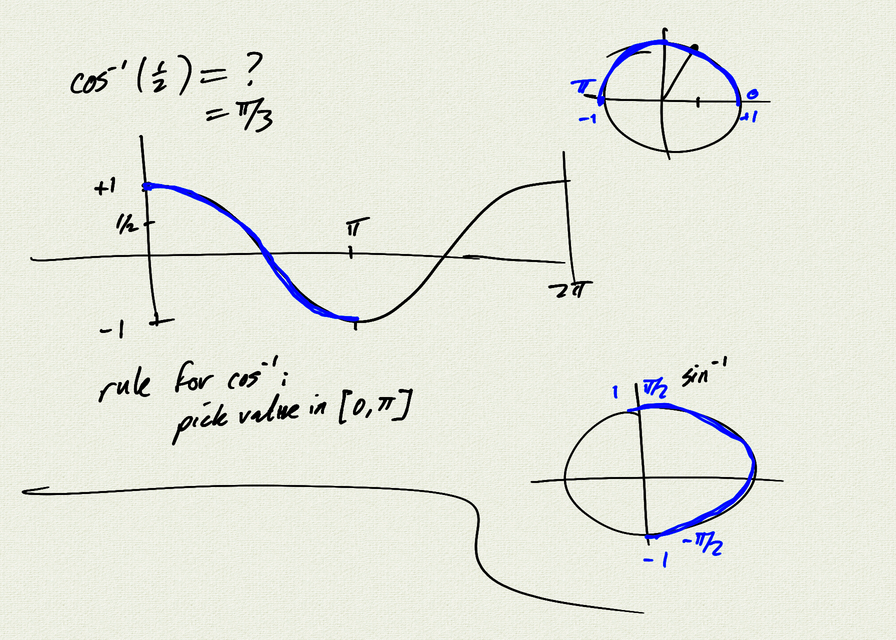 cos⁻¹(1/2) = ?
= π/3
π 0
-1 +1
+1
1/2
π
2π
-1
rule for cos⁻¹:
pick value in [0,π]
sin⁻¹
1 π/2
-π/2
-1